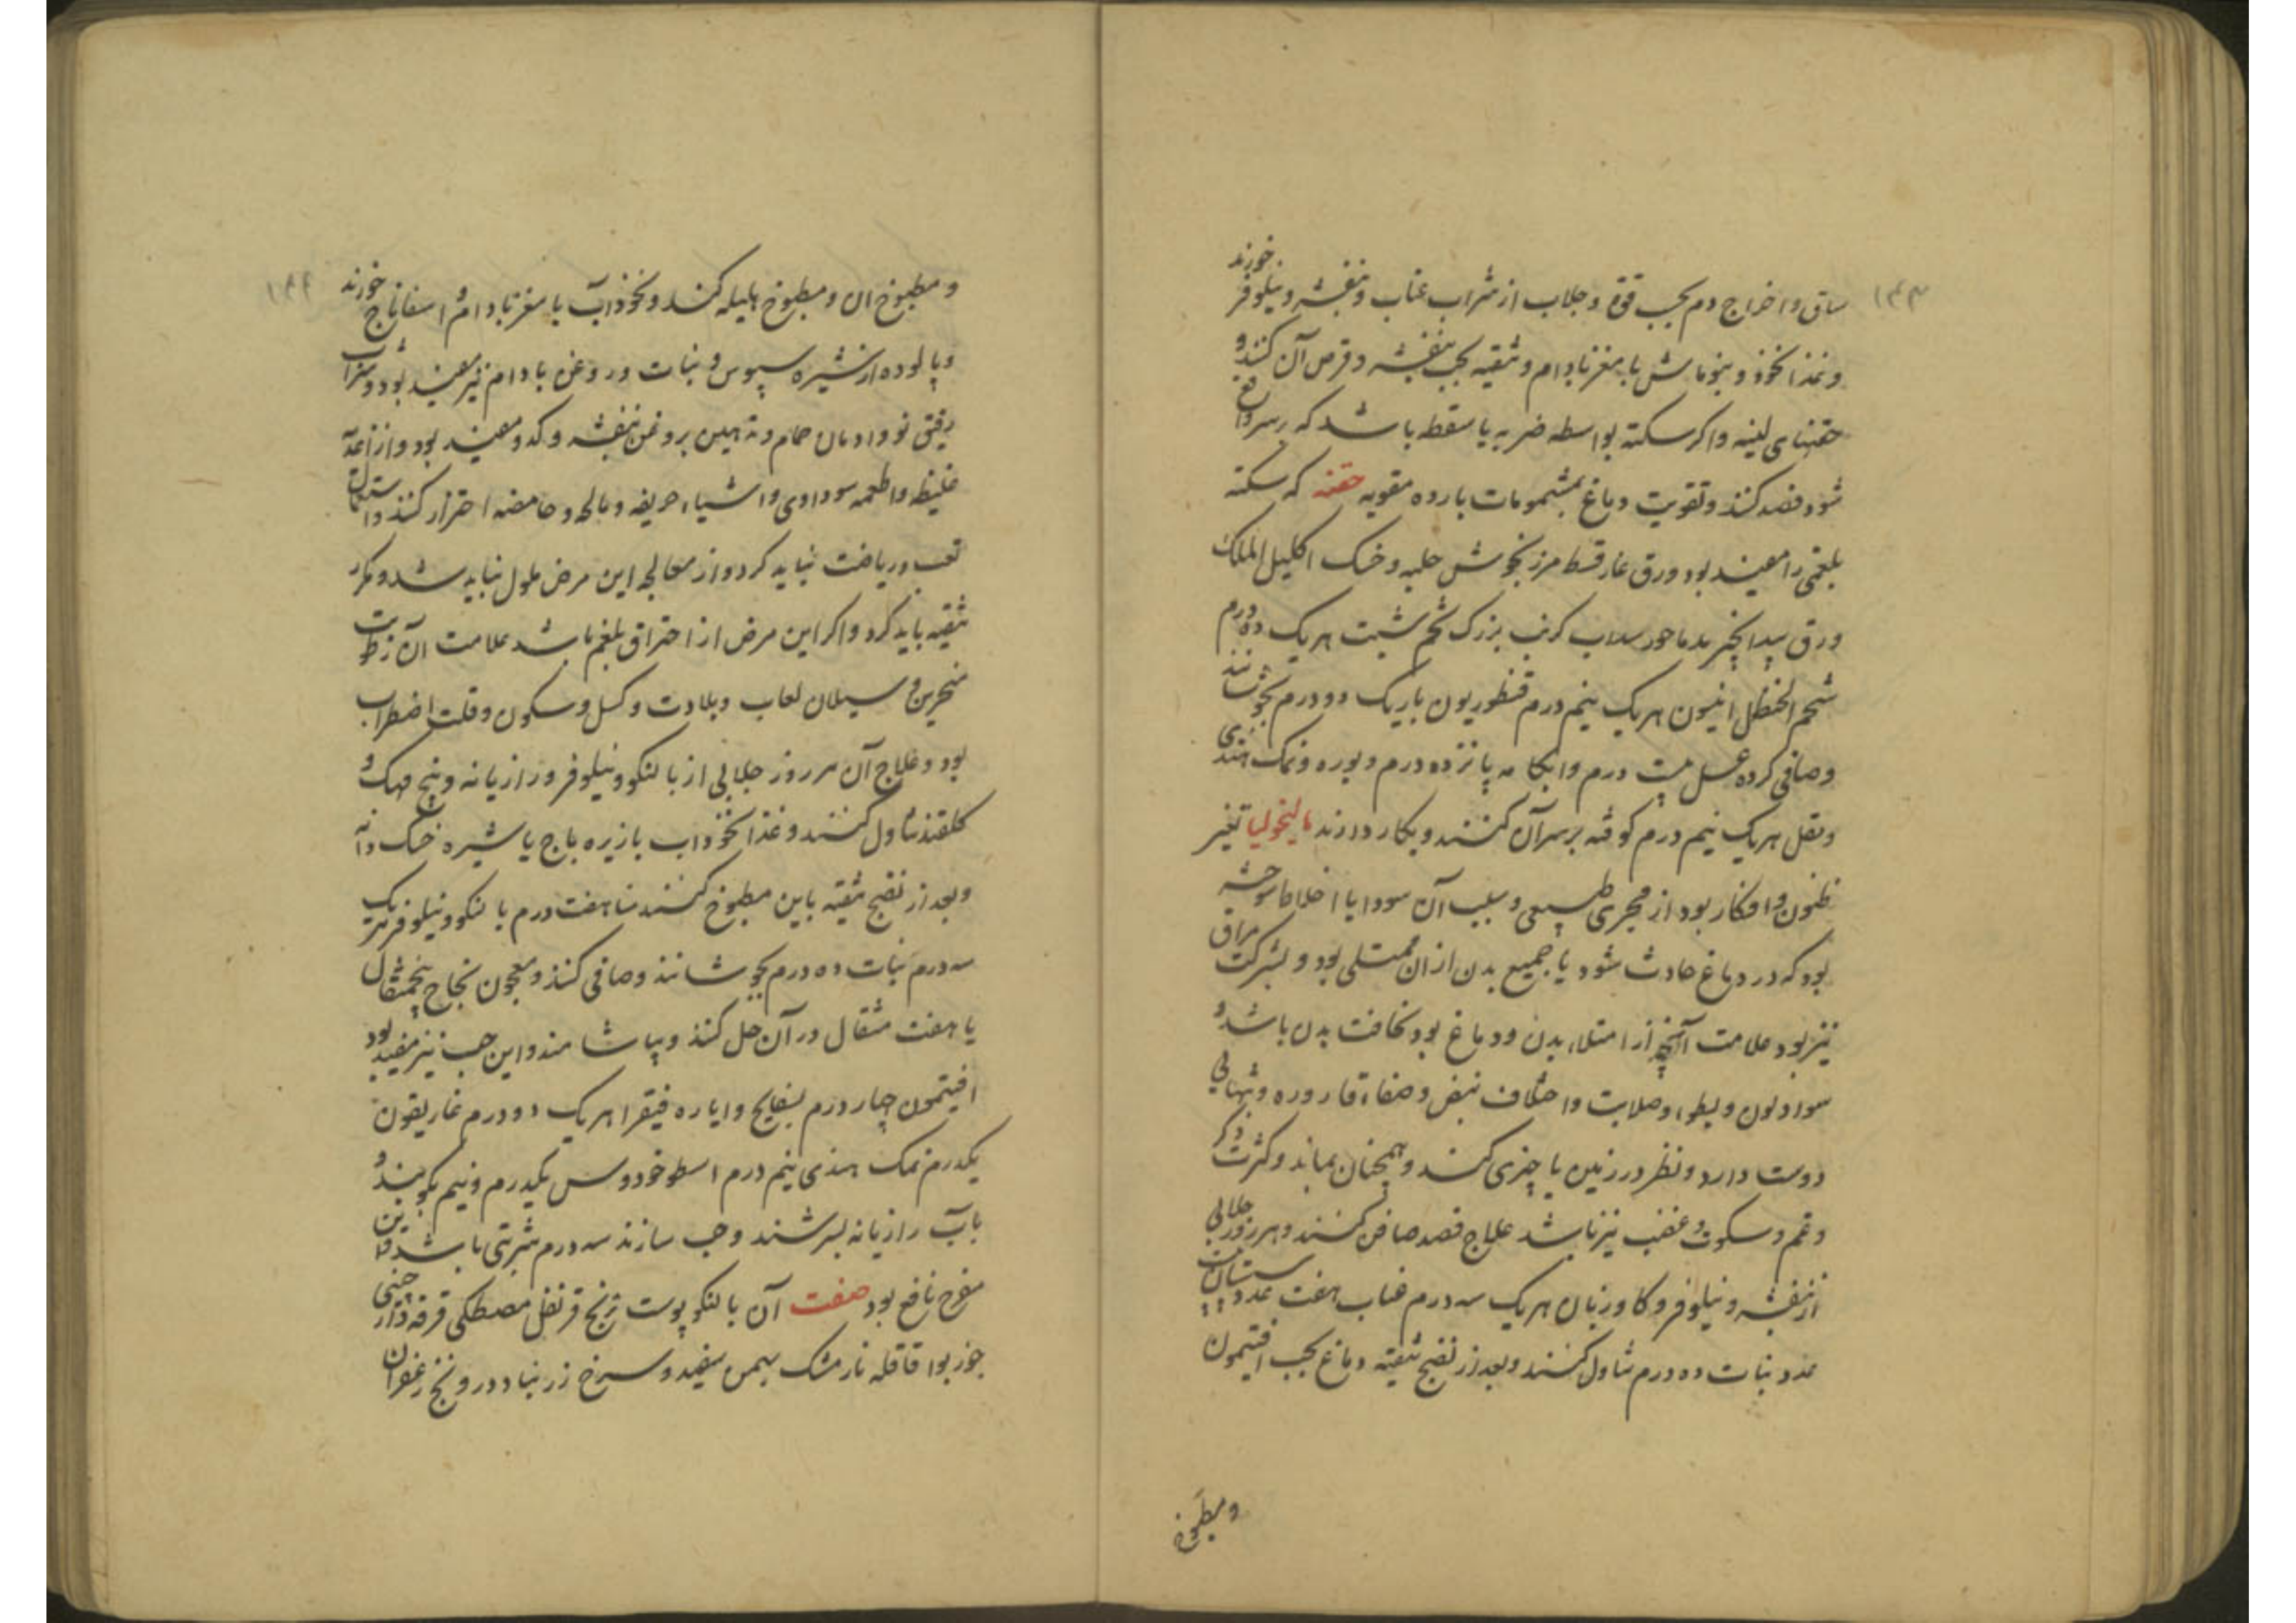 ۱۴۳
ساق و اخراج دم بحسب قوة و جلاب از شراب عناب و بنفشه و نیلوفر خورند
و غذا نخود و بنوماش با مغز بادام و تنقیه بحب بنفشه و قرص آن کنند و
حقنهای لینه و اکر سکته بواسطه ضربه یا سقطه باشد که بر سر واقع
شود فصد کنند و تقویت دماغ بمشمومات بارده مقویه حقنه که سکته
بلغمی را مفید بود ورق غار قسط مرزنجوش حلبه و خسک اکلیل الملک
ورق بیدانجیر سداب کرنب بزرک تخم شبت هر یک ده درم
شحم الحنظل انیسون هر یک نیم درم قنطوریون باریک دو درم بجوشانند
و صافی کرده عسل بیست درم و ابکامه پانزده درم و بوره و نمک هندی
و مقل هر یک نیم درم کوفته بر سر آن کنند و بکار دارند مالیخولیا تغیر
ظنون و افکار بود از مجری طبیعی و سبب آن سودا یا اخلاط سوخته
بود که در دماغ حادث شود یا جمیع بدن از ان ممتلی بود و بشرکت مراق
نیز بود علامت آنچه از امتلاء بدن و دماغ بود نحافت بدن باشد و
سواد لون و بطوء و صلابت و اختلاف نبض و صفاء قاروره و تنهایی
دوست دارد و نظر در زمین یا چیزی کند و همچنان بماند و کثرت ذکر
و غم و سکوت و غضب نیز باشد علاج فصد صافن کنند و هر روز جلابی
از بنفشه و نیلوفر و کاوزبان هر یک سه درم عناب هفت عدد سپستان بیست
عدد نبات ده درم تناول کنند و بعد از نضج تنقیه دماغ بحب افتیمون
و مطبوخ
۱۴۴
و مطبوخ ان و مطبوخ هلیله کنند و نخوذاب با مغز بادام و اسفاناج خورند
و پالوده از شیره سپوس و نبات و روغن بادام نیز مفید بود و شراب
رقیق نو و ادمان حمام و تدهین بروغن بنفشه و کدو مفید بود و از اغذیه
غلیظه و اطعمه سوداوی و اشیاء حریفه و مالحه و حامضه احتراز کنند و استعمال
تعب و ریاضت نباید کرد و از معالجه این مرض ملول نباید شد و مکرر
تنقیه باید کرد و اکر این مرض از احتراق بلغم باشد علامت آن رطوبت
منخرین و سیلان لعاب و بلادت و کسل و سکون و قلت اضطراب
بود و علاج آن هر روز جلابی از بالنکو و نیلوفر و رازیانه و بیخ مهک و
کلقند تناول کنند و غذا نخوداب با زیره باج یا شیره خسک دانه
و بعد از نضج تنقیه باین مطبوخ کنند سنا هفت درم بالنکو و نیلوفر هر یک
سه درم نبات ده درم بجوشانند و صافی کنند و معجون نجاح پنج مثقال
یا هفت مثقال در آن حل کنند و بیاشامند و این حب نیز مفید بود
افتیمون چهار درم بسفایج و ایاره فیقرا هر یک دو درم غاریقون
یکدرم نمک هندی نیم درم اسطوخودوس یکدرم و نیم بکوبند و
بآب رازیانه بسرشند و حب سازند سه درم شربتی باشد و این
مفرح نافع بود صفت آن بالنکو پوست ترنج قرنفل مصطکی قرفه دارچینی
جوز بوا قاقله نارمشک بهمن سفید و سرخ زرنباد درونج زعفران